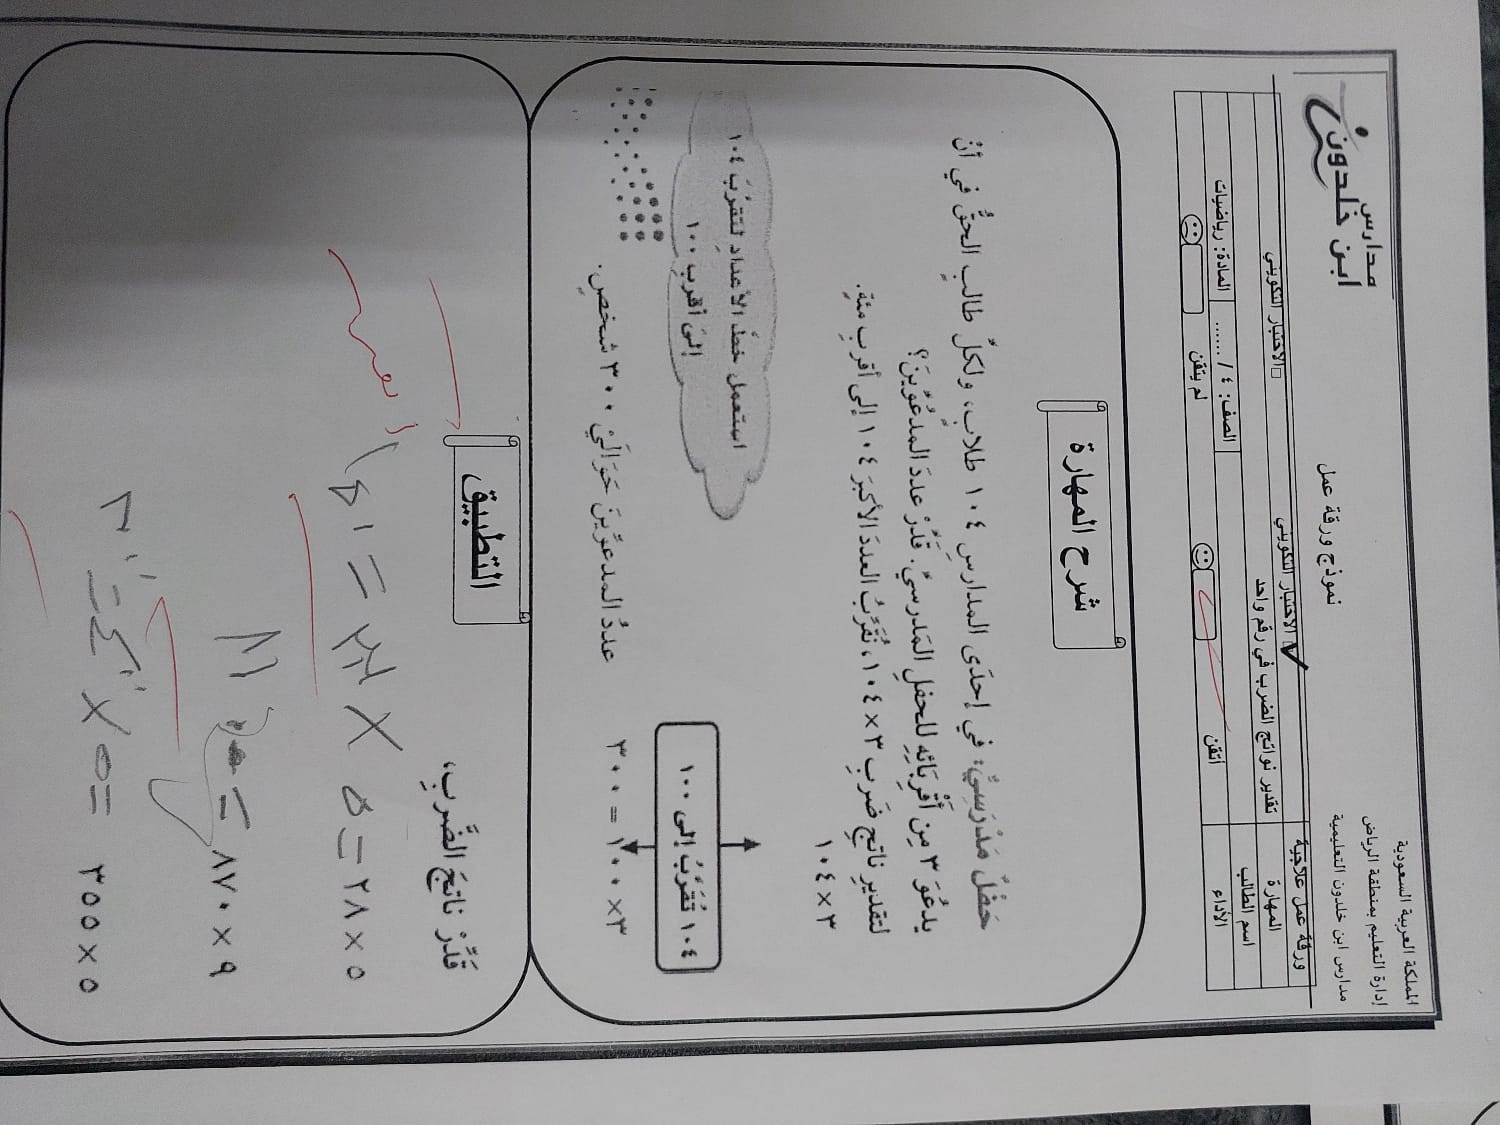 المملكة العربية السعودية
إدارة التعليم بمنطقة الرياض
مدارس ابن خلدون التعليمية
نموذج ورقة عمل
مدارس
ابن خلدون
ورقة عمل علاجية
الاختبار التكويني
الاختبار التكويني
المهارة
تقدير نواتج الضرب في رقم واحد
اسم الطالب
الصف: ٤ / .......
المادة: رياضيات
الأداء
أتقن
لم يتقن
شرح المهارة
حَفْلٌ مَدْرَسِيٌّ: في إحدَى المدارسِ ١٠٤ طلابٍ، ولكلِّ طالبٍ الحقُّ في أنْ
يدعُوَ ٣ مِنْ أَقْرِبَائِهِ للحفلِ المَدرسيِّ. قَدِّرْ عددَ المدْعُوِّينَ؟
لتقديرِ ناتجِ ضَربِ ٣ × ١٠٤، نُقَرِّبُ العددَ الأكبرَ ١٠٤ إلى أقربِ مئةٍ.
٣ × ١٠٤
١٠٤ تُقَرَّبُ إلى ١٠٠
استعمل خطَّ الأعدادِ لتقرِّبَ ١٠٤
إلىَ أقربِ ١٠٠
٣ × ١٠٠ = ٣٠٠
عددُ المدعوِّينَ حَوَالَيْ ٣٠٠ شخصٍ.
التطبيق
قَدِّرْ ناتجَ الضَّربِ،
٥ × ٢٨ = ٥ ×
٩ × ٨٧٠ =
٥ × ٣٥٥ = ٥ ×